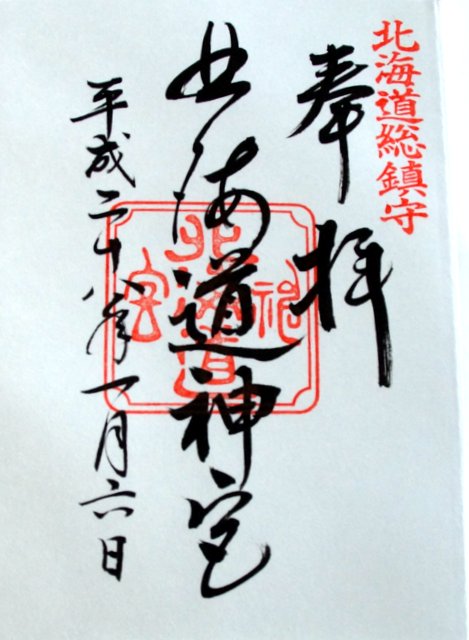 北海道総鎮守
奉拝
北海道神宮
平成二十八年一月六日
北海道神宮